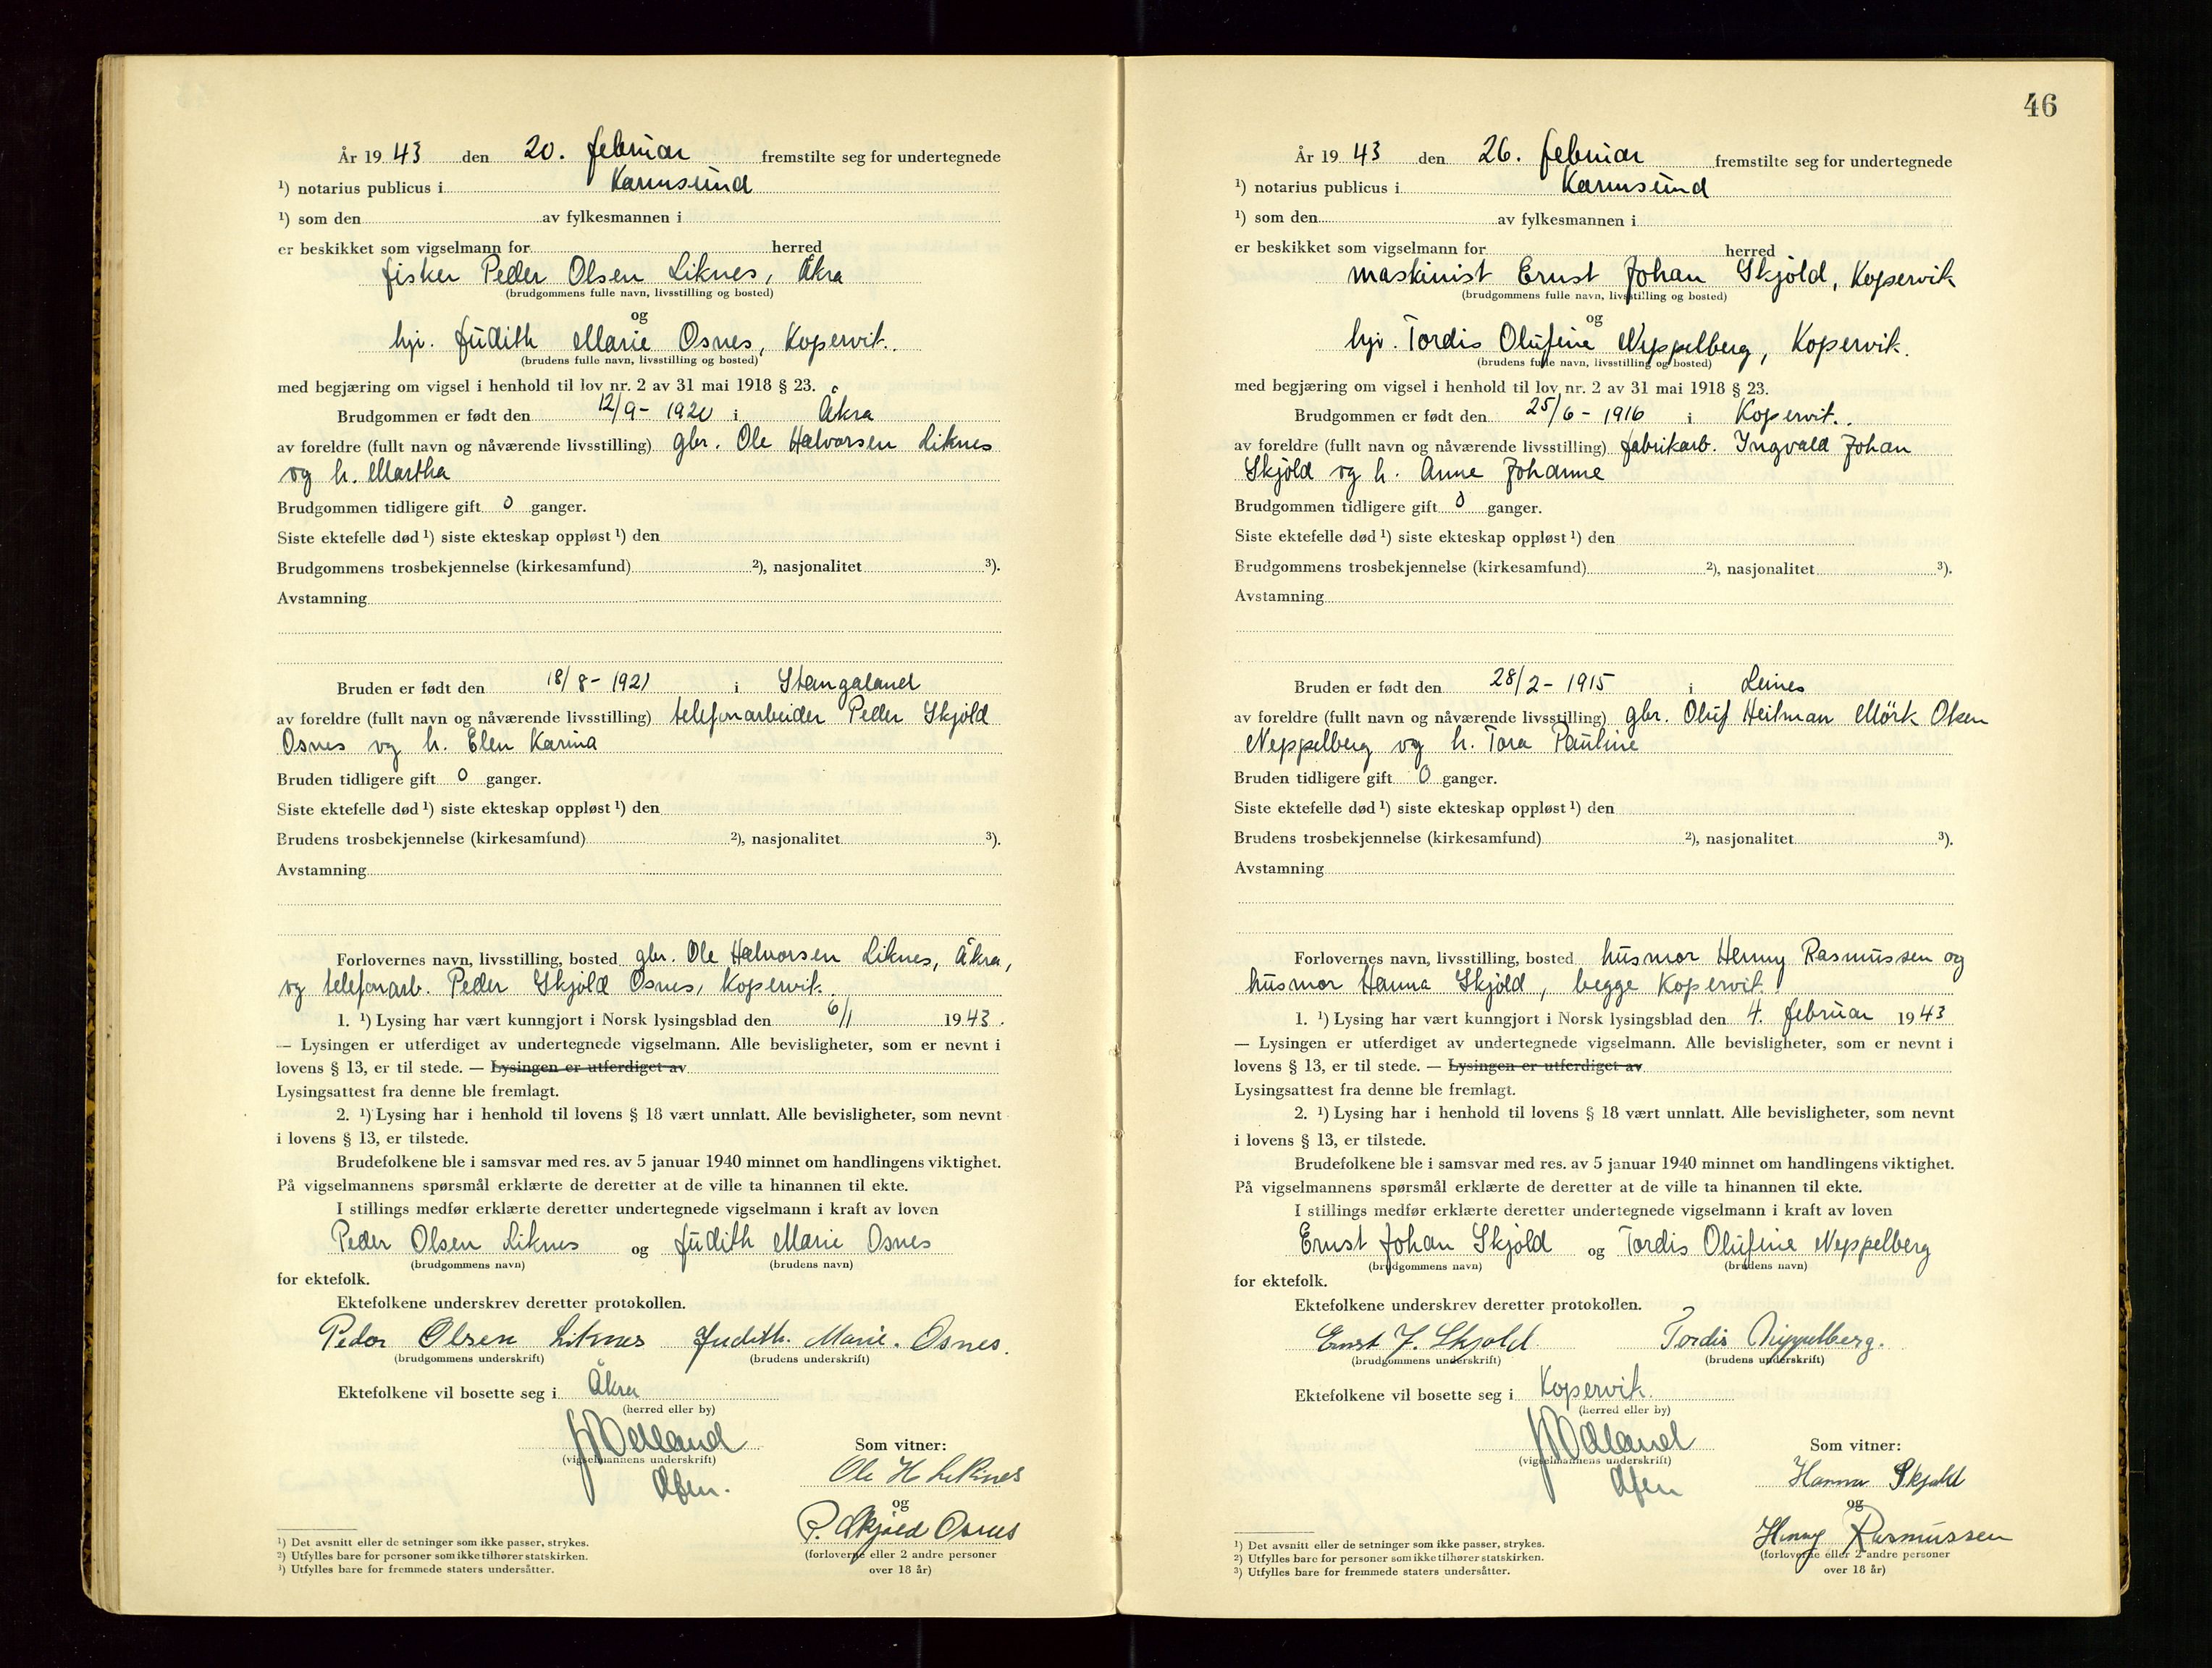 År 1943 den 20. februar fremstilte seg for undertegnede
¹) notarius publicus i Karmsund
¹) som den av fylkesmannen i
er beskikket som vigselmann for herred
fisker Peder Olsen Liknes, Åkra
(brudgommens fulle navn, livsstilling og bosted)
og
hjv. Judith Marie Osnes, Kopervik.
(brudens fulle navn, livsstilling og bosted)
med begjæring om vigsel i henhold til lov nr. 2 av 31 mai 1918 § 23.
Brudgommen er født den 12/9 - 1920 i Åkra
av foreldre (fullt navn og nåværende livsstilling) gbr. Ole Halvorsen Liknes
og h. Martha
Brudgommen tidligere gift 0 ganger.
Siste ektefelle død ¹) siste ekteskap oppløst ¹) den
Brudgommens trosbekjennelse (kirkesamfund) ²), nasjonalitet ³).
Avstamning
Bruden er født den 18/8 - 1921 i Stangaland
av foreldre (fullt navn og nåværende livsstilling) telefonarbeider Peder Skjöld
Osnes og h. Elen Karina
Bruden tidligere gift 0 ganger.
Siste ektefelle død ¹) siste ekteskap oppløst ¹) den
Brudens trosbekjennelse (kirkesamfund) ²), nasjonalitet ³).
Avstamning
Forlovernes navn, livsstilling, bosted gbr. Ole Halvorsen Liknes, Åkra,
og telefonarb. Peder Skjöld Osnes, Kopervik.
1. ¹) Lysing har vært kunngjort i Norsk lysingsblad den 6/1 1943.
— Lysingen er utferdiget av undertegnede vigselmann. Alle bevisligheter, som er nevnt i
lovens § 13, er til stede. — Lysingen er utferdiget av
Lysingsattest fra denne ble fremlagt.
2. ¹) Lysing har i henhold til lovens § 18 vært unnlatt. Alle bevisligheter, som nevnt
i lovens § 13, er tilstede.
Brudefolkene ble i samsvar med res. av 5 januar 1940 minnet om handlingens viktighet.
På vigselmannens spørsmål erklærte de deretter at de ville ta hinannen til ekte.
I stillings medfør erklærte deretter undertegnede vigselmann i kraft av loven
Peder Olsen Liknes og Judith Marie Osnes
(brudgommens navn) (brudens navn)
for ektefolk.
Ektefolkene underskrev deretter protokollen.
Peder Olsen Liknes Judith. Marie. Osnes.
(brudgommens underskrift) (brudens underskrift)
Ektefolkene vil bosette seg i Åkra
(herred eller by)
Som vitner:
(vigselmannens underskrift)
Ole H Liknes
og
P. Skjold Osnes
(forloverne eller 2 andre personer
over 18 år)
¹) Det avsnitt eller de setninger som ikke passer, strykes.
²) Utfylles bare for personer som ikke tilhører statskirken.
³) Utfylles bare for fremmede staters undersåtter.
46
År 1943 den 26. februar fremstilte seg for undertegnede
¹) notarius publicus i Karmsund
¹) som den av fylkesmannen i
er beskikket som vigselmann for herred
maskinist Ernst Johan Skjöld, Kopervik
(brudgommens fulle navn, livsstilling og bosted)
og
hjv. Tordis Olufine Neppelberg, Kopervik.
(brudens fulle navn, livsstilling og bosted)
med begjæring om vigsel i henhold til lov nr. 2 av 31 mai 1918 § 23.
Brudgommen er født den 25/6 - 1916 i Kopervik.
av foreldre (fullt navn og nåværende livsstilling) fabrikarb. Ingvald Johan
Skjöld og h. Anne Johanne
Brudgommen tidligere gift 0 ganger.
Siste ektefelle død ¹) siste ekteskap oppløst ¹) den
Brudgommens trosbekjennelse (kirkesamfund) ²), nasjonalitet ³).
Avstamning
Bruden er født den 28/2 - 1915 i Leines
av foreldre (fullt navn og nåværende livsstilling) gbr. Oluf Heitman Mörk Olsen
Neppelberg og h. Tora Pauline
Bruden tidligere gift 0 ganger.
Siste ektefelle død ¹) siste ekteskap oppløst ¹) den
Brudens trosbekjennelse (kirkesamfund) ²), nasjonalitet ³).
Avstamning
Forlovernes navn, livsstilling, bosted husmor Henny Rasmussen og
husmor Hanna Skjöld, begge Kopervik.
1. ¹) Lysing har vært kunngjort i Norsk lysingsblad den 4. februar 1943
— Lysingen er utferdiget av undertegnede vigselmann. Alle bevisligheter, som er nevnt i
lovens § 13, er til stede. — Lysingen er utferdiget av
Lysingsattest fra denne ble fremlagt.
2. ¹) Lysing har i henhold til lovens § 18 vært unnlatt. Alle bevisligheter, som nevnt
i lovens § 13, er tilstede.
Brudefolkene ble i samsvar med res. av 5 januar 1940 minnet om handlingens viktighet.
På vigselmannens spørsmål erklærte de deretter at de ville ta hinannen til ekte.
I stillings medfør erklærte deretter undertegnede vigselmann i kraft av loven
Ernst Johan Skjöld og Tordis Olufine Neppelberg
(brudgommens navn) (brudens navn)
for ektefolk.
Ektefolkene underskrev deretter protokollen.
Ernst J. Skjold. Tordis Neppelberg.
(brudgommens underskrift) (brudens underskrift)
Ektefolkene vil bosette seg i Kopervik.
(herred eller by)
Som vitner:
(vigselmannens underskrift)
Hanna Skjold
og
Henny Rasmussen
(forloverne eller 2 andre personer
over 18 år)
¹) Det avsnitt eller de setninger som ikke passer, strykes.
²) Utfylles bare for personer som ikke tilhører statskirken.
³) Utfylles bare for fremmede staters undersåtter.